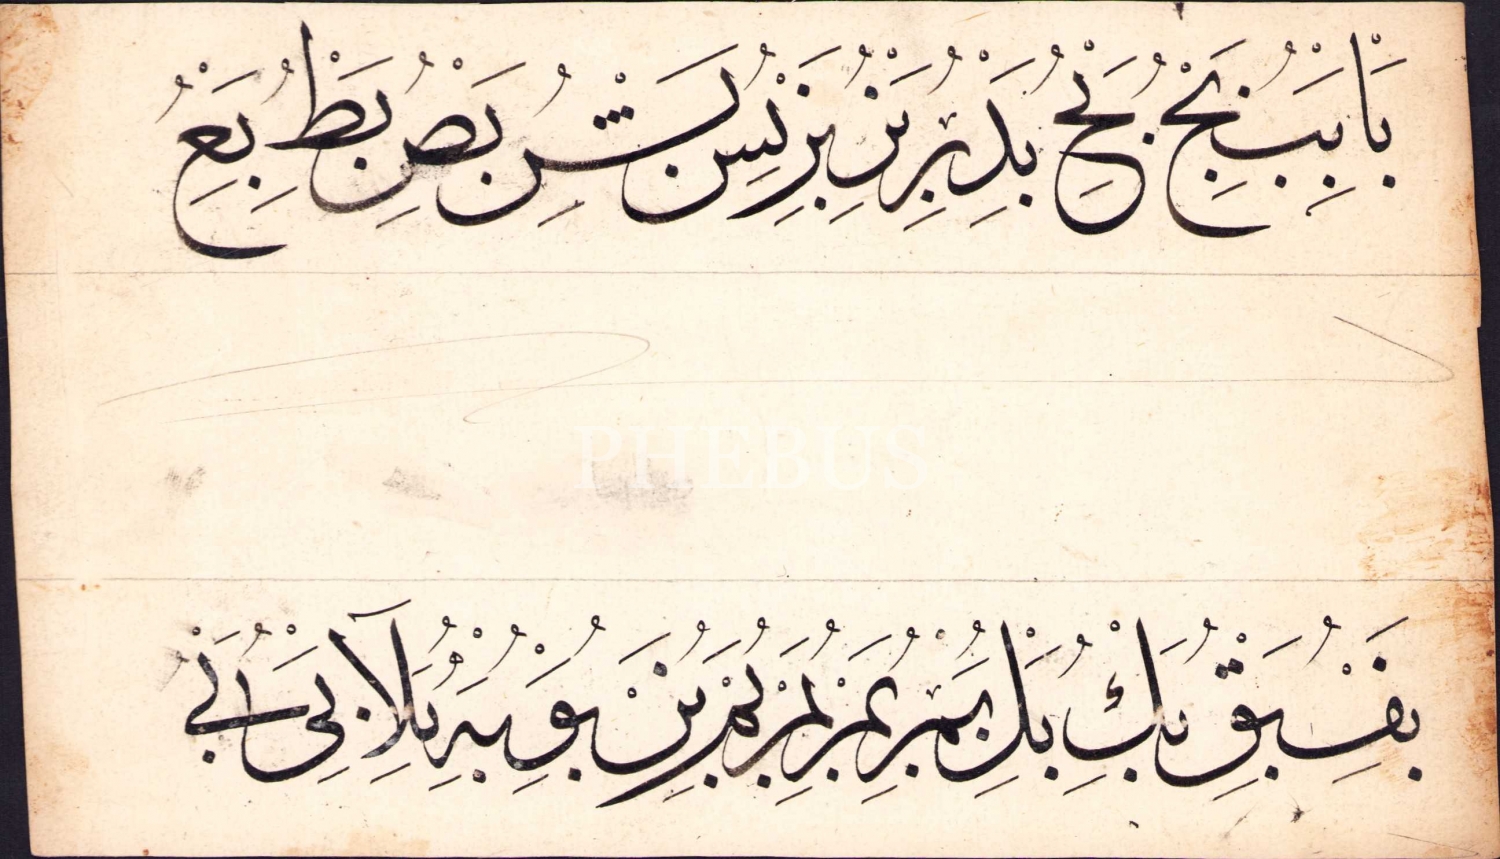 با بب بج بح بد بر بن بز بس بش بص بط بع
PHEBUS
بف بق بك بل بم بمر بمر بمر بن بو به بلا بى بى